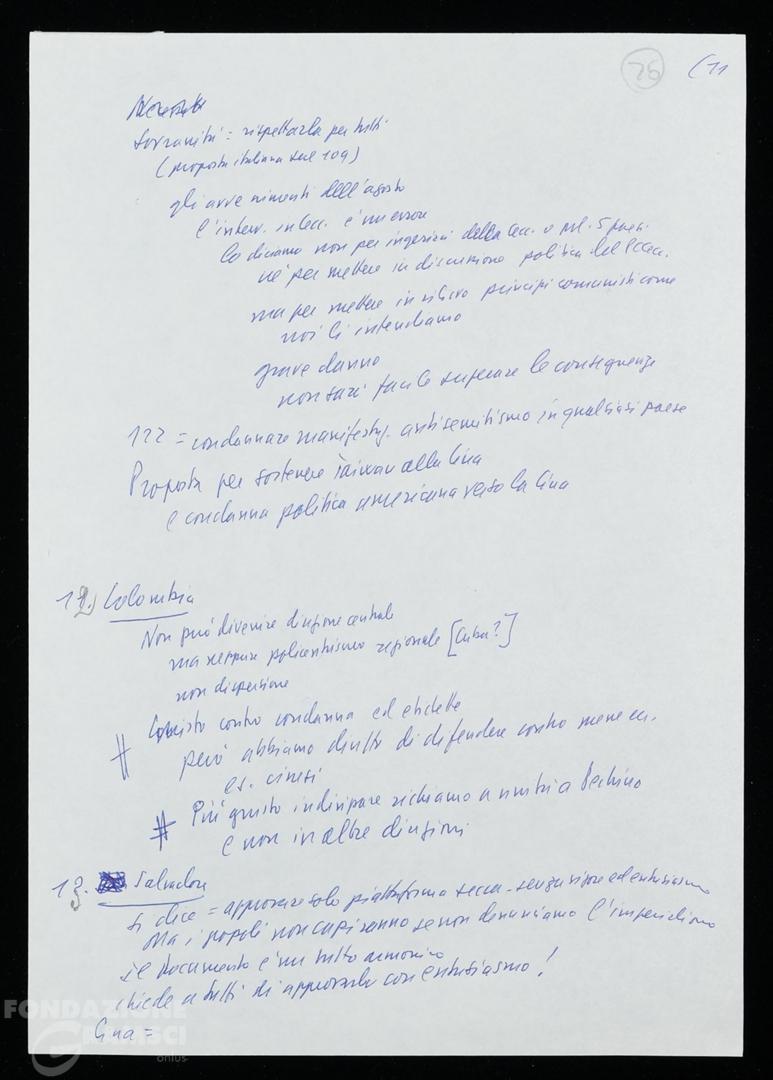 76 (11
Necessità
Sovranità = rispettarla per tutti
(proposta italiana sul 109)
gli avvenimenti dell'agosto
l'interv. in Cec. è un errore
lo diciamo non per ingerirci della Cec. o pol. 5 paesi
né per mettere in discussione politica del PCCec.
ma per mettere in rilievo principi comunisti come
noi li intendiamo
grave danno
non sarà facile superare le conseguenze
122 = condannare manifestaz. antisemitismo in qualsiasi paese
Proposta per sostenere Taiwan alla Cina
e condanna politica americana verso la Cina
12. Colombia
Non può divenire direzione centrale
ma neppure policentrismo regionale [Cuba?]
non dispersione
# Giusto contro condanna ed etichette
però abbiamo diritto di difendere contro
es. cinesi
# Più giusto indirizzare richiamo a unità a Pechino
e non in altre direzioni
13. Salvador
si dice = approvare solo piattaforma secca - senza vigore ed entusiasmo
Ma i popoli non capiranno se non denunciamo l'imperialismo
il Documento è un tutto armonico
chiede a tutti di approvarlo con entusiasmo!
Cina =
FONDAZIONE
GRAMSCI
onlus